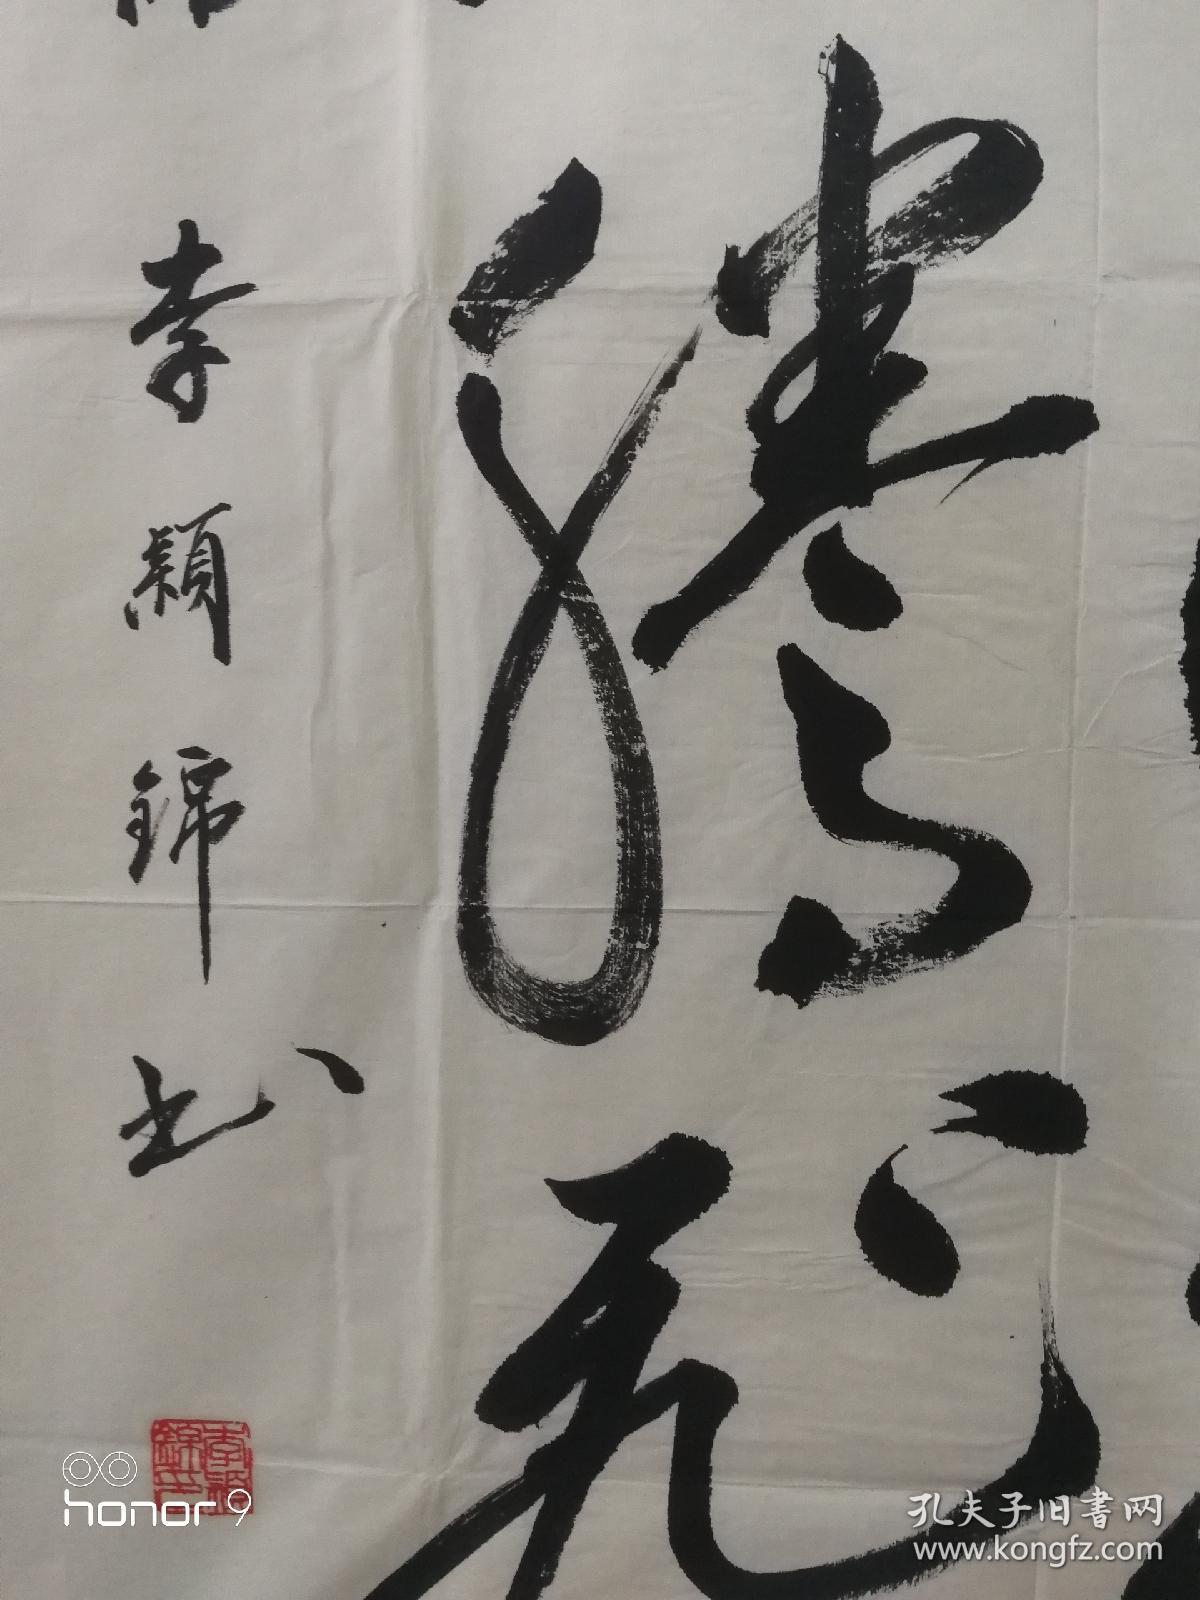 騰飛
李穎錦書
honor 9
孔夫子旧書网
www.kongfz.com